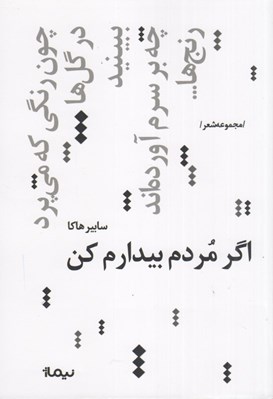 چون رنگی که می‌پرد
در گل‌ها
ببینید
چه بر سرم آورده‌اند
رنج‌ها...
/مجموعه شعر/
سابیر هاکا
اگر مُردم بیدارم کن
نیماژ